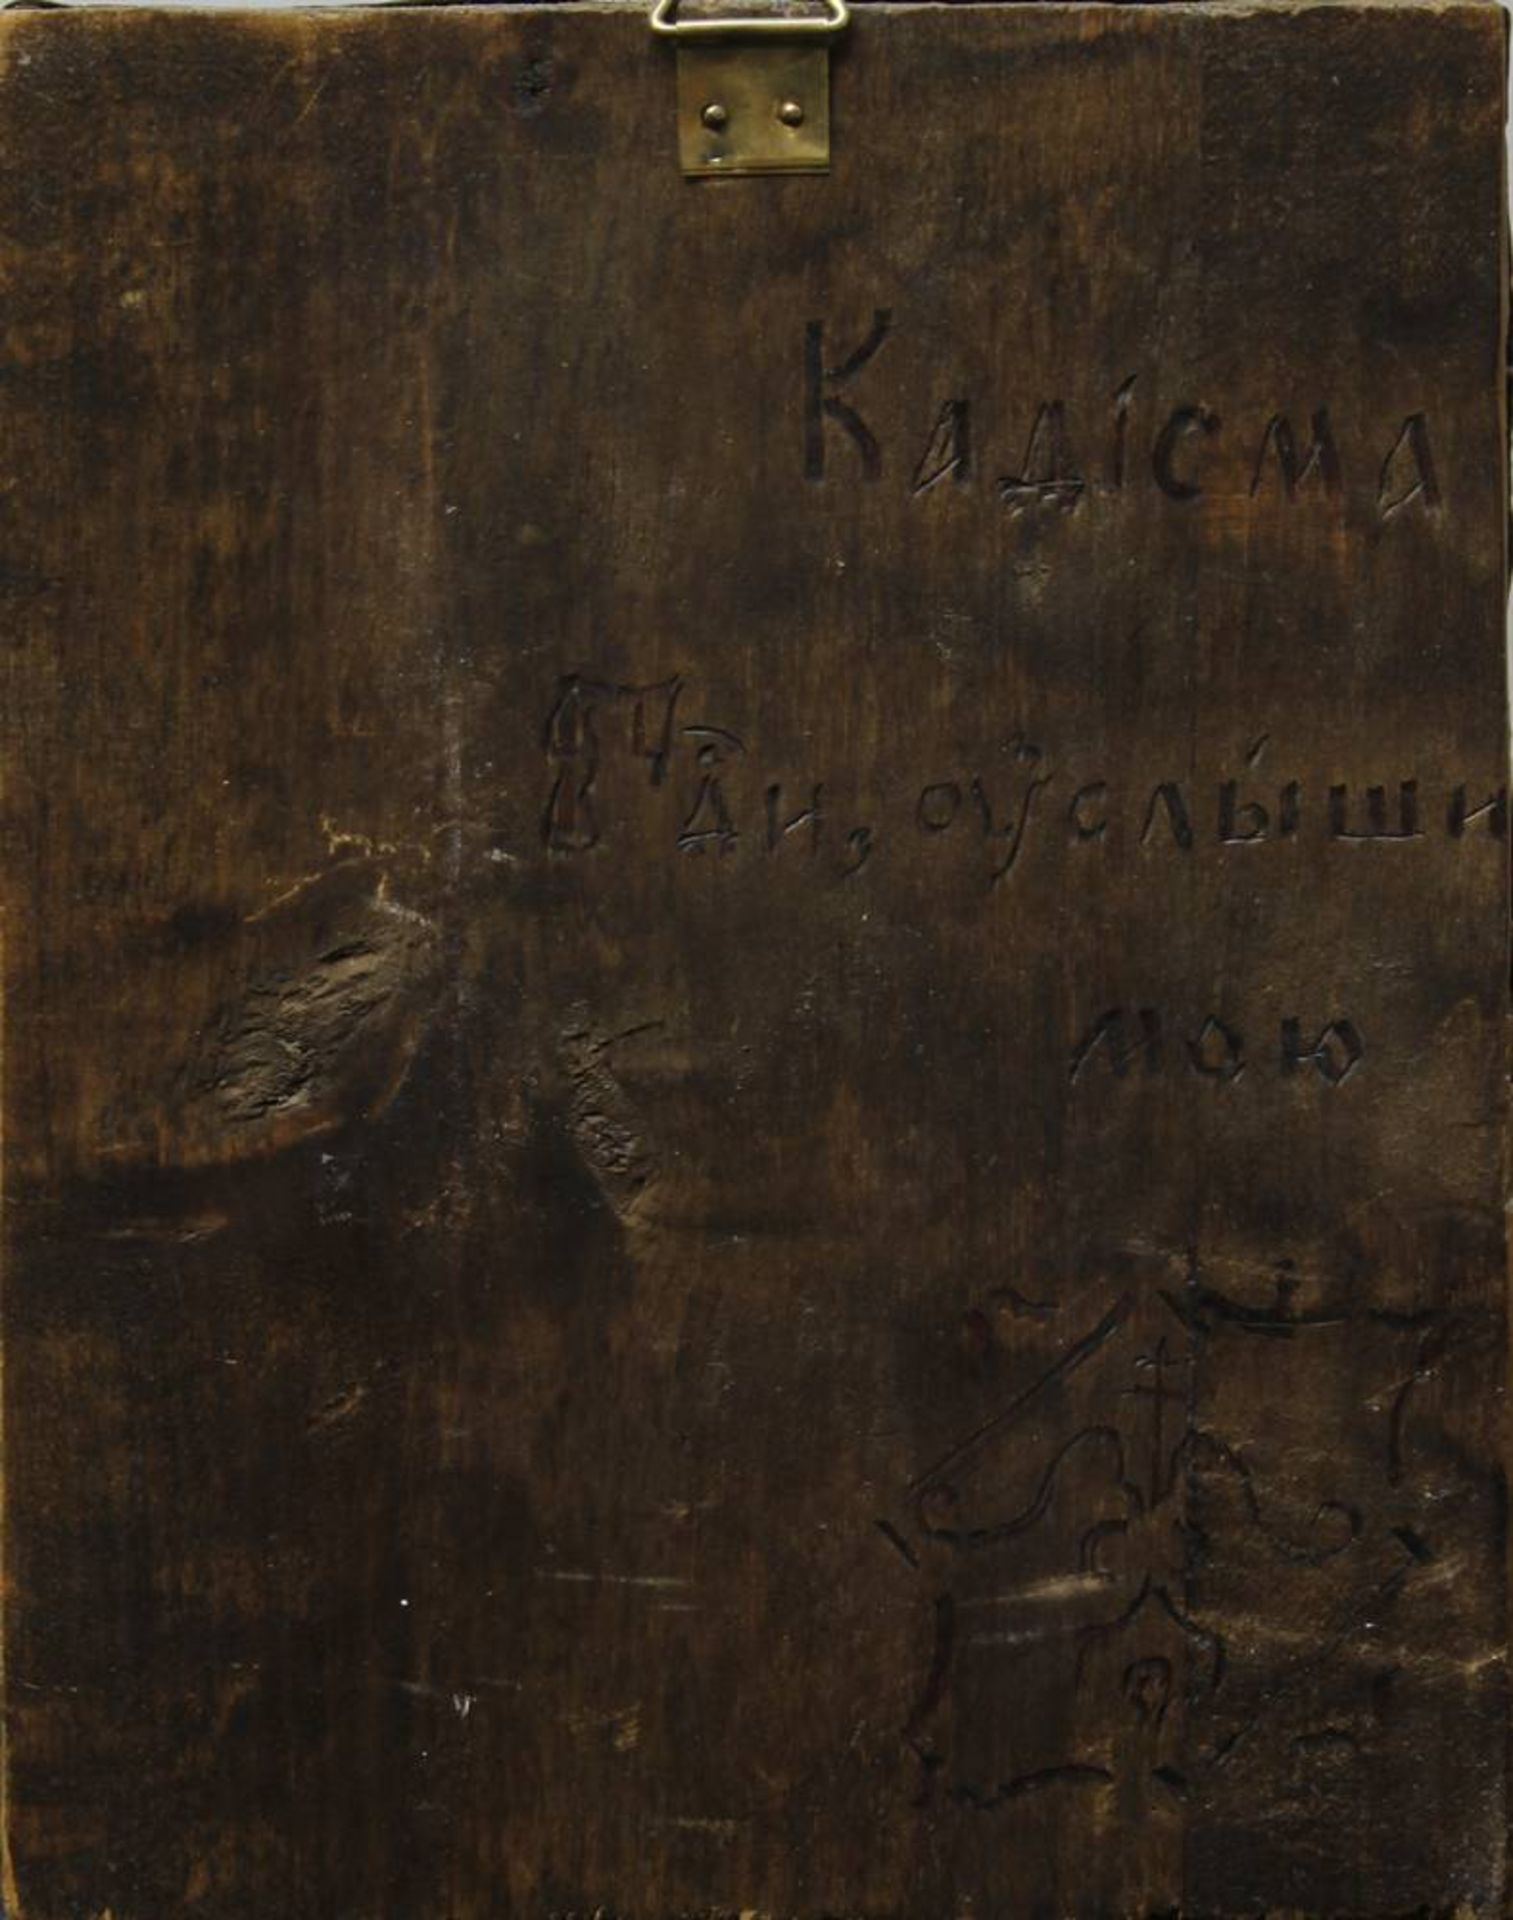 Кадісма
Гди, оуслы́ши
мою